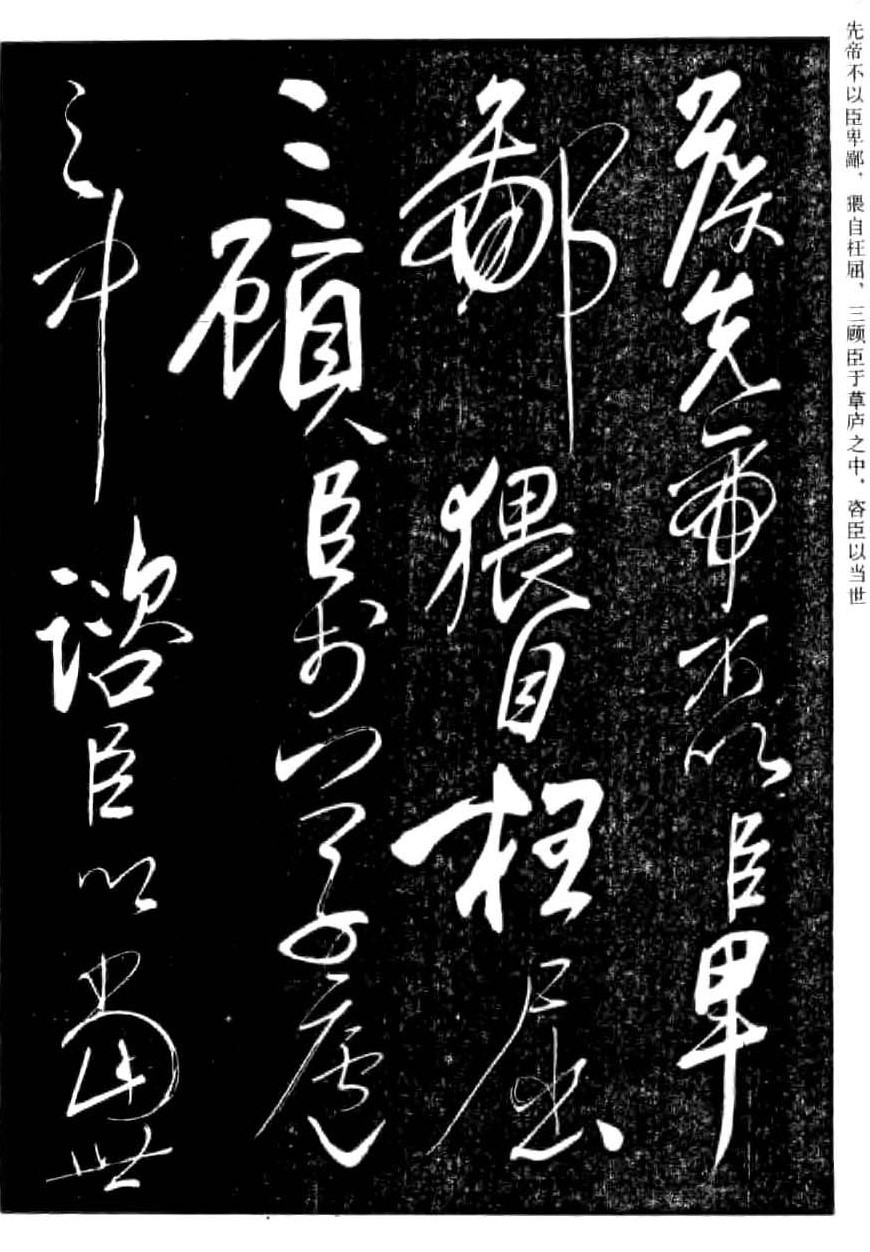 先帝不以臣卑鄙，猥自枉屈，三顾臣于草庐之中，咨臣以当世
侯先帝不以臣卑
鄙猥自枉屈
三顧臣於草廬
之中諮臣以當世